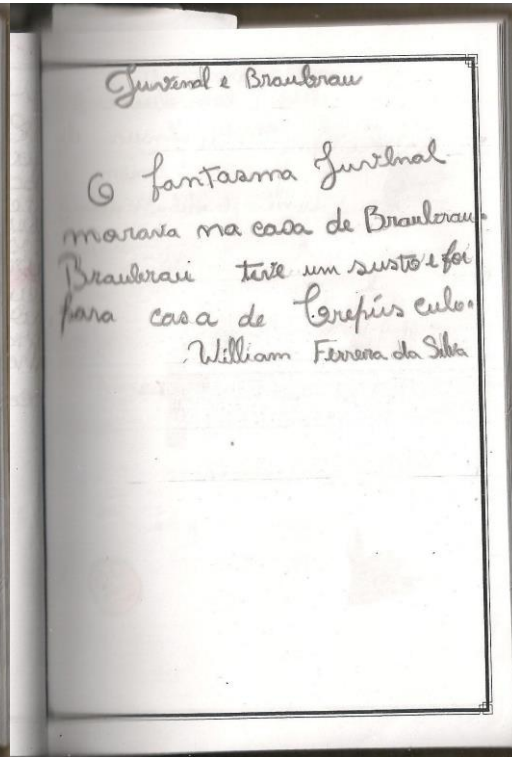 Juvenal e Braubrau
O fantasma Juvenal
morava na casa de Braubrau.
Braubrau teve um susto e foi
para casa de Crepús culo.
William Ferreira da Silva